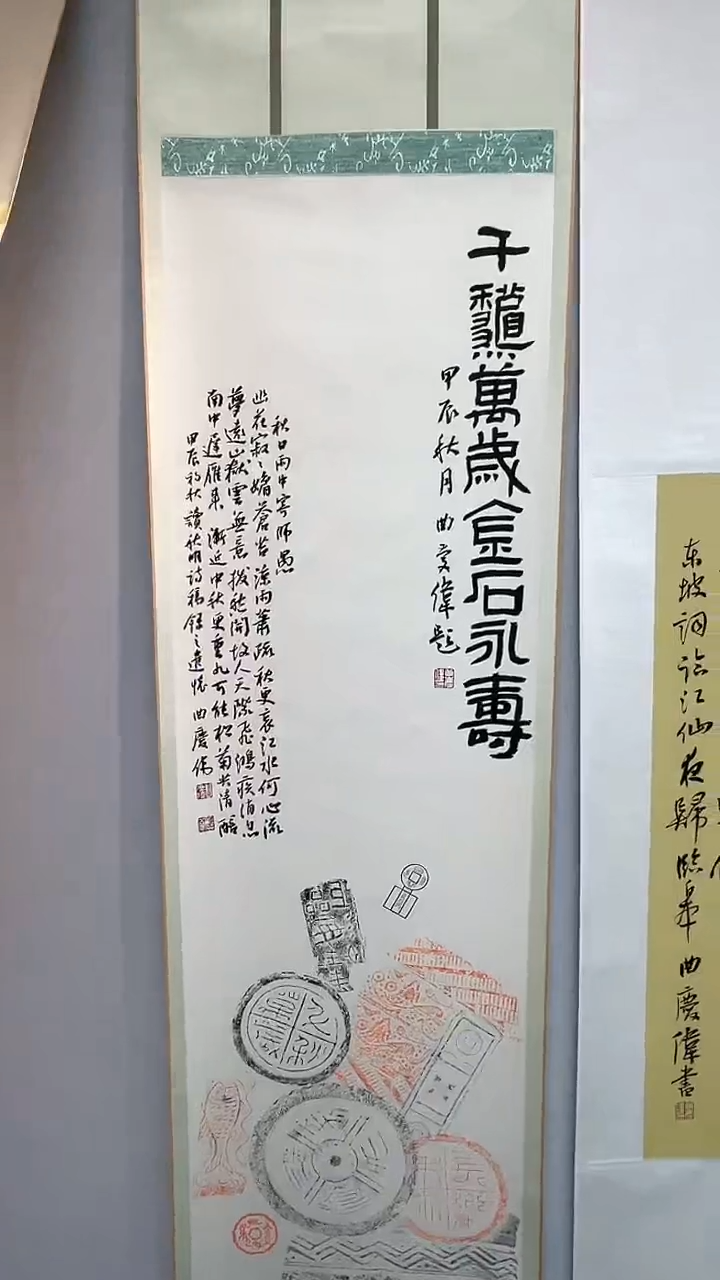 千龝萬歲金石永壽
甲辰秋月曲慶偉題
秋日雨中寄师愚
幽花寂〻媚蒼苔凉雨蕭疏秋更哀江水何心流
夢遠山嶽雲無意拨愁開故人天際飛鴻疾消息
南中遲雁來漸近中秋更重九可能松菊共清醅
甲辰初秋讀秋明詩稿録之遣懷曲慶偉
东坡詞臨江仙夜歸臨皋曲慶偉書